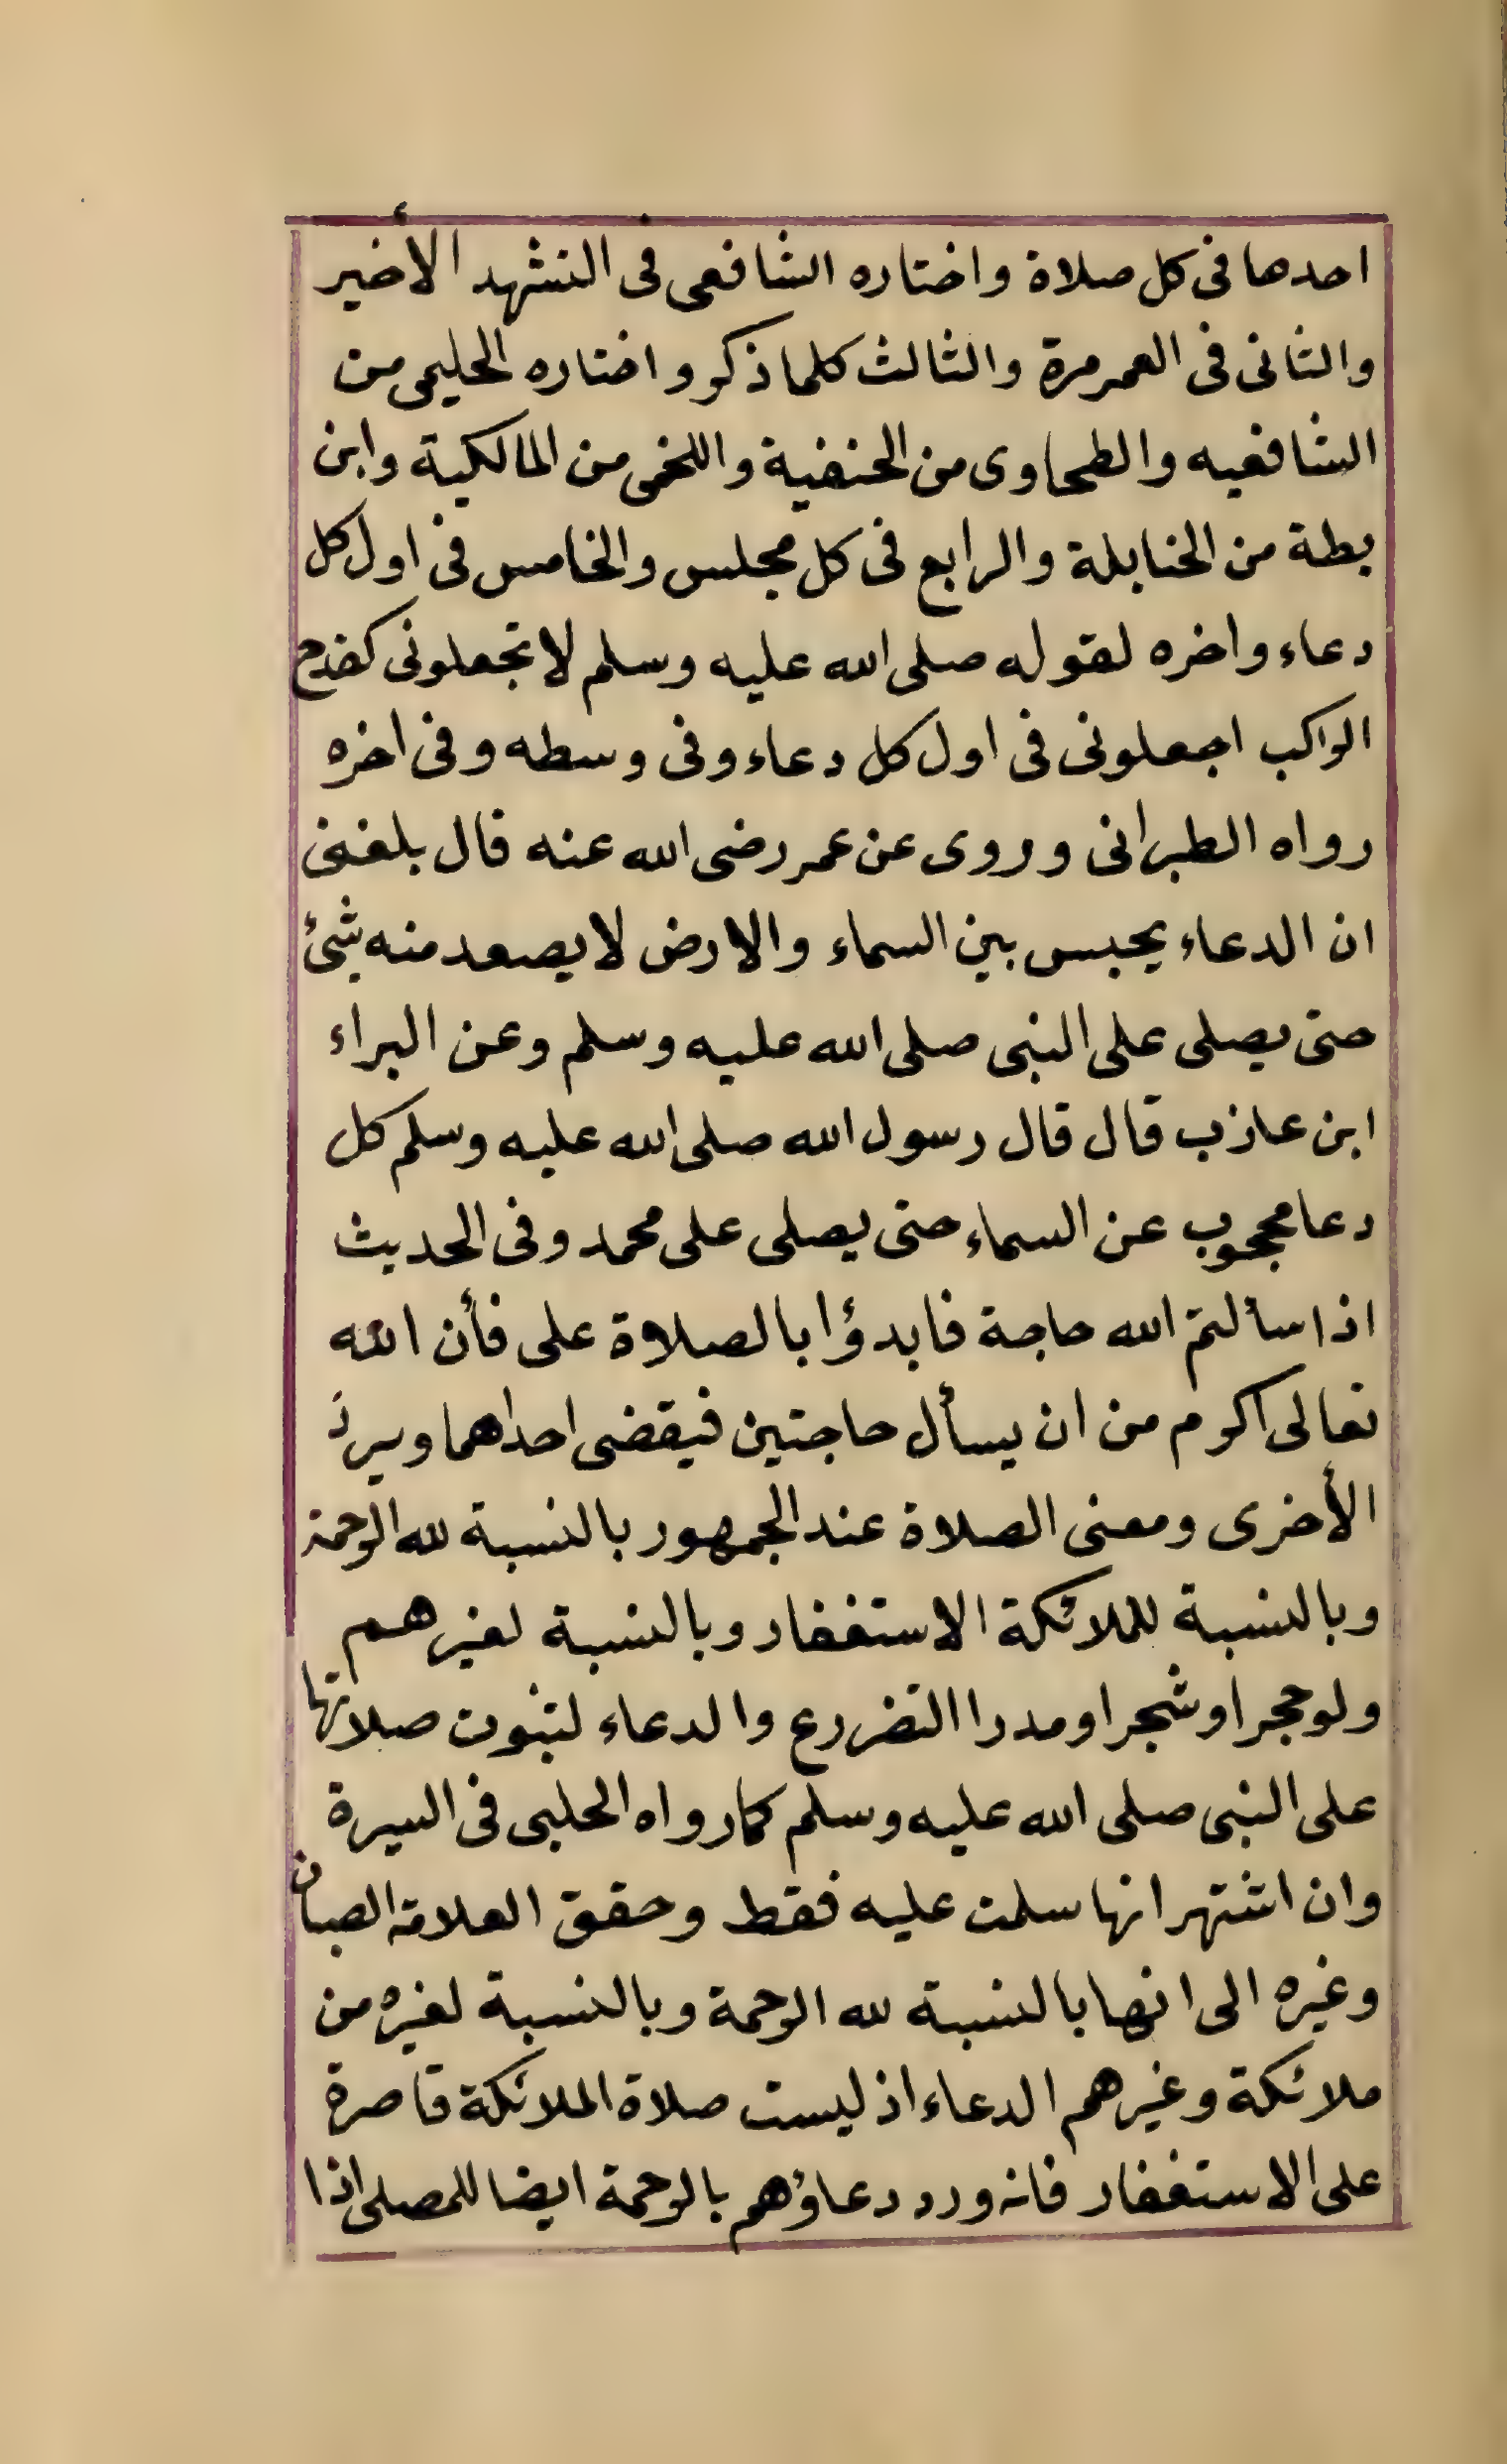 احدها فى كل صلاة واختاره الشافعى فى التشهد الأخير
والثانى فى العمر مرة والثالث كلما ذكر واختاره الحليمى من
الشافعيه والطحاوى من الحنفية واللخمى من المالكية وابن
بطة من الحنابلة والرابع فى كل مجلس والخامس فى اول كل
دعاء واخره لقوله صلى الله عليه وسلم لا تجعلونى كقدح
الراكب اجعلونى فى اول كل دعاء وفى وسطه وفى اخره
رواه الطبرانى وروى عن عمر رضى الله عنه قال بلغنى
ان الدعاء يحبس بين السماء والارض لا يصعد منه شئ
حتى يصلى على النبى صلى الله عليه وسلم وعن البراء
ابن عازب قال قال رسول الله صلى الله عليه وسلم كل
دعا محجوب عن السماء حتى يصلى على محمد وفى الحديث
اذا سألتم الله حاجة فابدؤا بالصلاة على فأن الله
تعالى اكرم من ان يسأل حاجتين فيقضى احداهما ويرد
الأخرى ومعنى الصلاة عند الجمهور بالنسبة لله الرحمة
وبالنسبة للملائكة الاستغفار وبالنسبة لغيرهم
ولو حجرا وشجرا ومدرا التضررع والدعاء لثبوت صلاتها
على النبى صلى الله عليه وسلم كما رواه الحلبى فى السيرة
وان اشتهر انها سلمت عليه فقط وحقق العلامة الصبان
وغيره الى انها بالنسبة لله الرحمة وبالنسبة لغيره من
ملائكة وغيرهم الدعاء اذ ليست صلاة الملائكة قاصرة
على الاستغفار فانه ورد دعاؤهم بالرحمة ايضا للمصلى اذا